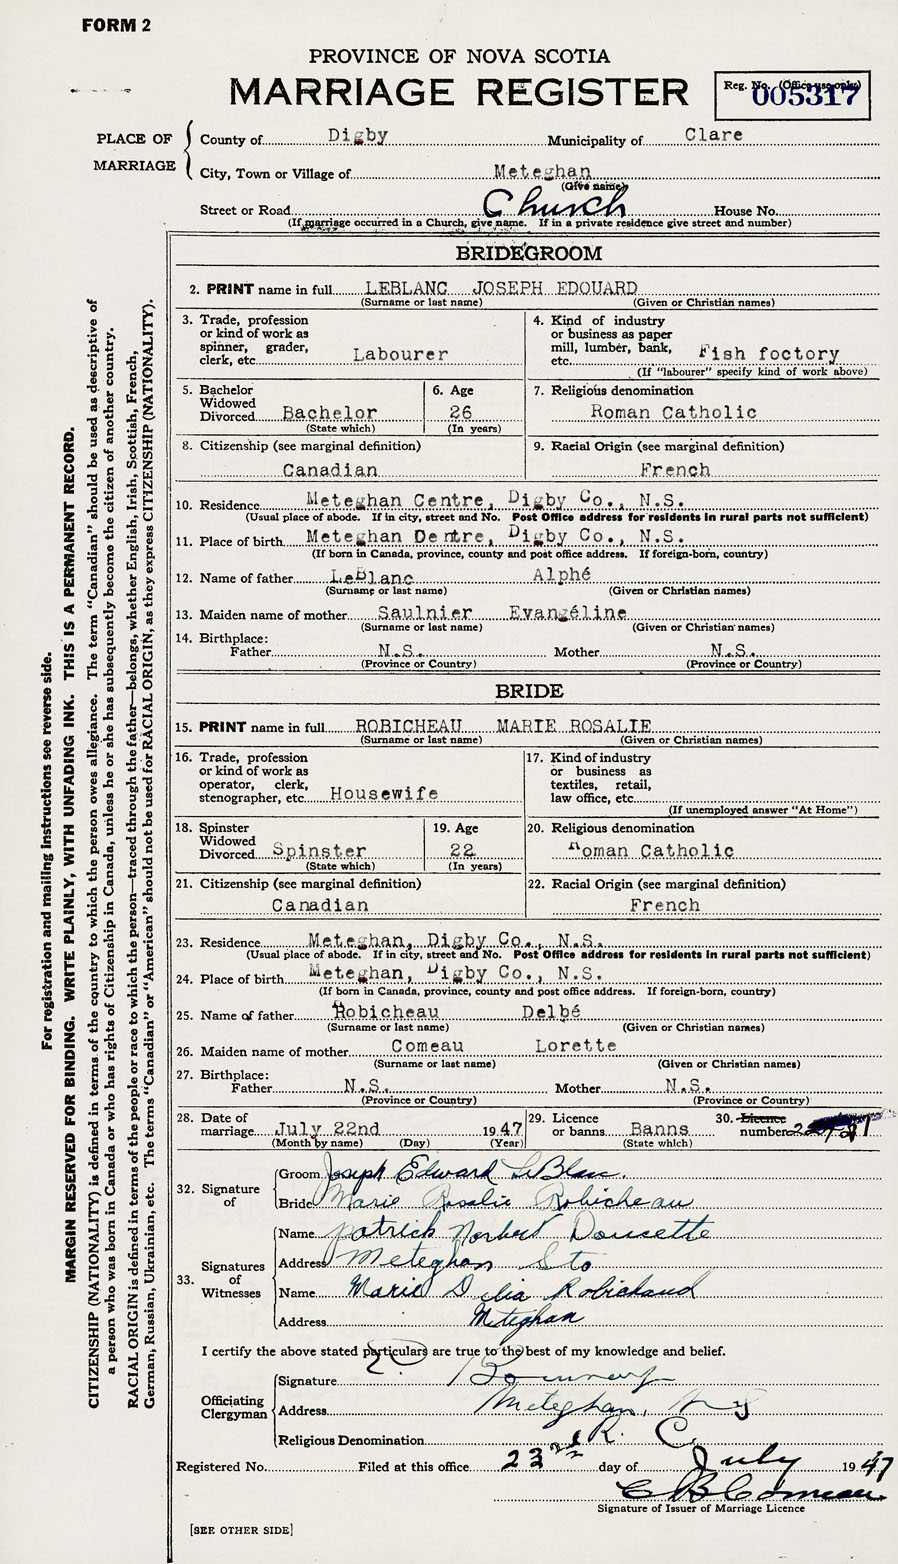 FORM 2
PROVINCE OF NOVA SCOTIA
MARRIAGE REGISTER
Reg. No. (Office use only)
005317
PLACE OF MARRIAGE
County of Digby Municipality of Clare
City, Town or Village of Meteghan
(Give name)
Street or Road Church House No.
(If marriage occurred in a Church, give name. If in a private residence give street and number)
BRIDEGROOM
2. PRINT name in full LEBLANC JOSEPH EDOUARD
(Surname or last name) (Given or Christian names)
3. Trade, profession
or kind of work as
spinner, grader,
clerk, etc. Labourer
4. Kind of industry
or business as paper
mill, lumber, bank,
etc. Fish foctory
(If "labourer" specify kind of work above)
5. Bachelor
Widowed
Divorced Bachelor
(State which)
6. Age
26
(In years)
7. Religious denomination
Roman Catholic
8. Citizenship (see marginal definition)
Canadian
9. Racial Origin (see marginal definition)
French
10. Residence Meteghan Centre, Digby Co., N.S.
(Usual place of abode. If in city, street and No. Post Office address for residents in rural parts not sufficient)
11. Place of birth Meteghan Dentre, Digby Co., N.S.
(If born in Canada, province, county and post office address. If foreign-born, country)
12. Name of father LeBlanc Alphé
(Surname or last name) (Given or Christian names)
13. Maiden name of mother Saulnier Evangéline
(Surname or last name) (Given or Christian names)
14. Birthplace:
Father N.S. Mother N.S.
(Province or Country) (Province or Country)
BRIDE
15. PRINT name in full ROBICHEAU MARIE ROSALIE
(Surname or last name) (Given or Christian names)
16. Trade, profession
or kind of work as
operator, clerk,
stenographer, etc. Housewife
17. Kind of industry
or business as
textiles, retail,
law office, etc.
(If unemployed answer "At Home")
18. Spinster
Widowed
Divorced Spinster
(State which)
19. Age
22
(In years)
20. Religious denomination
Roman Catholic
21. Citizenship (see marginal definition)
Canadian
22. Racial Origin (see marginal definition)
French
23. Residence Meteghan, Digby Co., N.S.
(Usual place of abode. If in city, street and No. Post Office address for residents in rural parts not sufficient)
24. Place of birth Meteghan, Digby Co., N.S.
(If born in Canada, province, county and post office address. If foreign-born, country)
25. Name of father Robicheau Delbé
(Surname or last name) (Given or Christian names)
26. Maiden name of mother Comeau Lorette
(Surname or last name) (Given or Christian names)
27. Birthplace:
Father N.S. Mother N.S.
(Province or Country) (Province or Country)
28. Date of
marriage July 22nd 1947
(Month by name) (Day) (Year)
29. Licence
or banns Banns
(State which)
30. Licence
number
32. Signature of
Groom Joseph Edward LeBlanc.
Bride Marie Rosalie Robicheau
33. Signatures of Witnesses
Name Patrick Norbert Doucette
Address Meteghan Sta
Name Marie Delia Robichaud
Address Meteghan
I certify the above stated particulars are true to the best of my knowledge and belief.
Officiating Clergyman
Signature
Address Meteghan, N S
Religious Denomination R. C.
Registered No. Filed at this office 23rd day of July 1947
C B Comeau
Signature of Issuer of Marriage Licence
[SEE OTHER SIDE]
For registration and mailing instructions see reverse side.
MARGIN RESERVED FOR BINDING. WRITE PLAINLY, WITH UNFADING INK. THIS IS A PERMANENT RECORD.
CITIZENSHIP (NATIONALITY) is defined in terms of the country to which the person owes allegiance. The term "Canadian" should be used as descriptive of
a person who was born in Canada or who has rights of Citizenship in Canada, unless he or she has subsequently become the citizen of another country.
RACIAL ORIGIN is defined in terms of the people or race to which the person—traced through the father—belongs, whether English, Irish, Scottish, French,
German, Russian, Ukrainian, etc. The terms "Canadian" or "American" should not be used for RACIAL ORIGIN, as they express CITIZENSHIP (NATIONALITY).